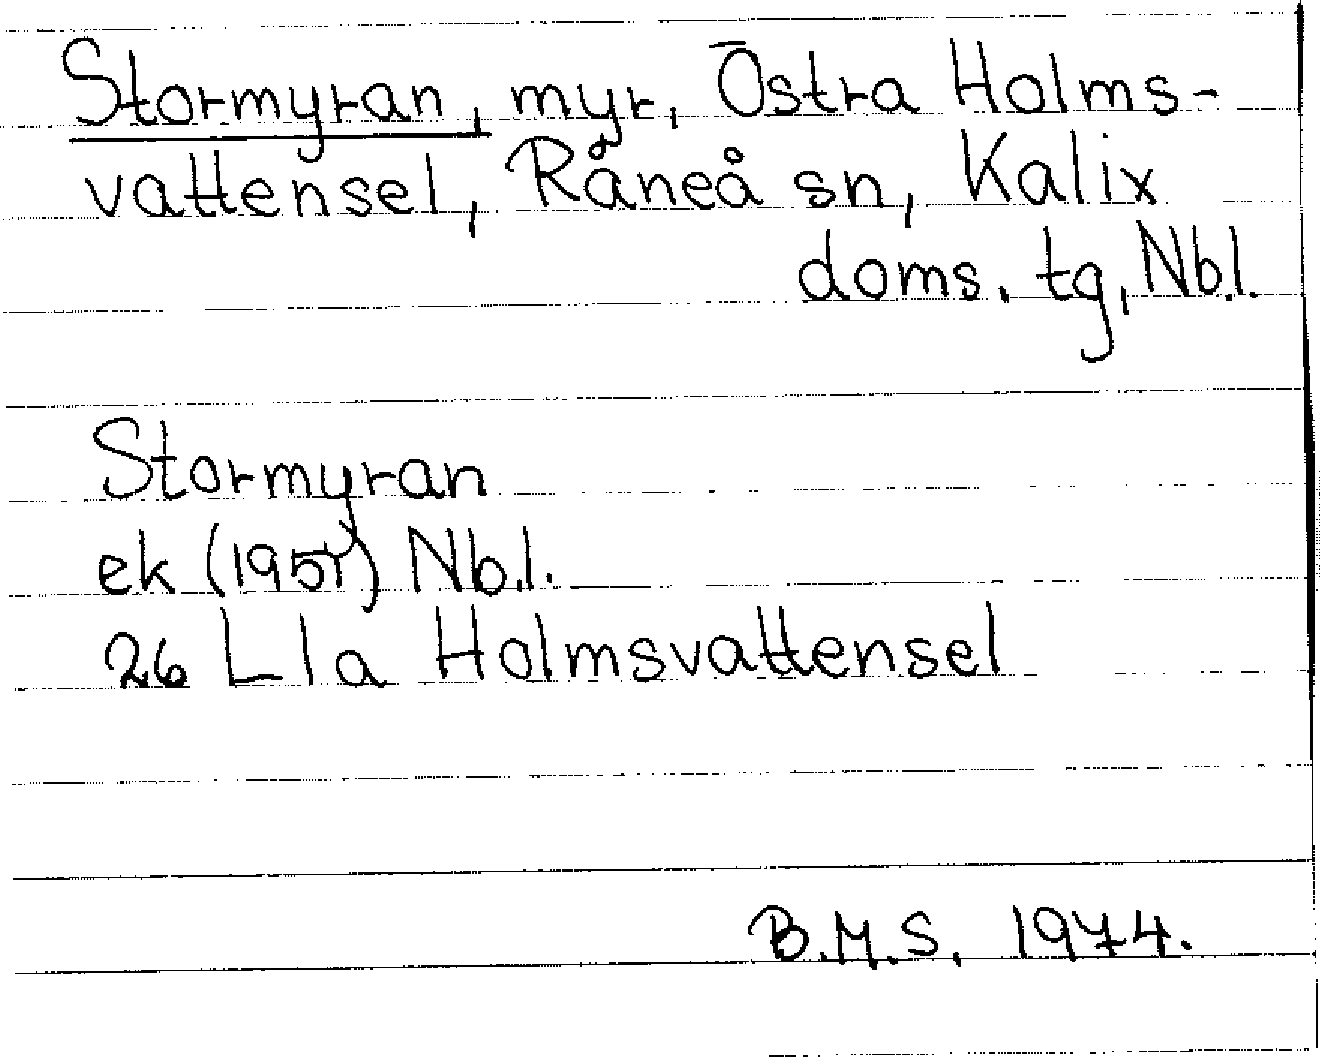 Stormyran, myr, Östra Holms-
vattensel, Råneå sn, Kalix
doms. tg, Nb.l.
Stormyran
ek Nb.l.
26 L 1a Holmsvattensel
B.M.S. 1974.